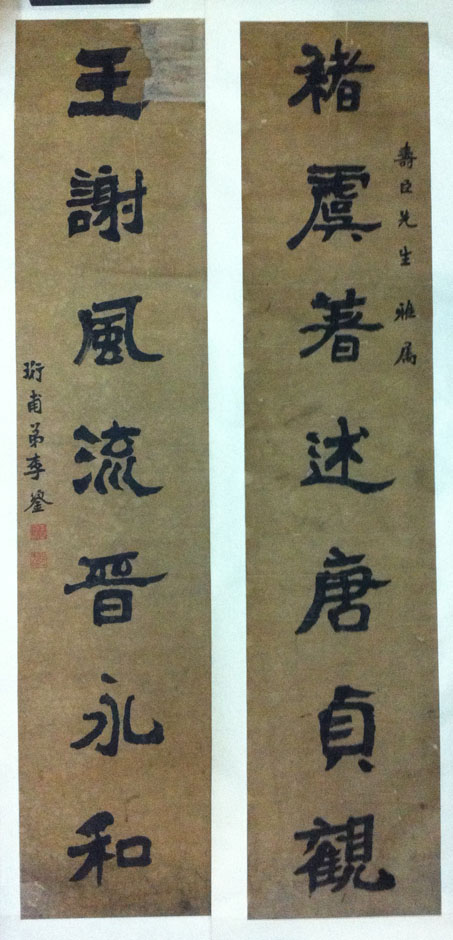 褚虞著述唐貞觀
壽臣先生 雅屬
王謝風流晉永和
珩甫弟李鎣